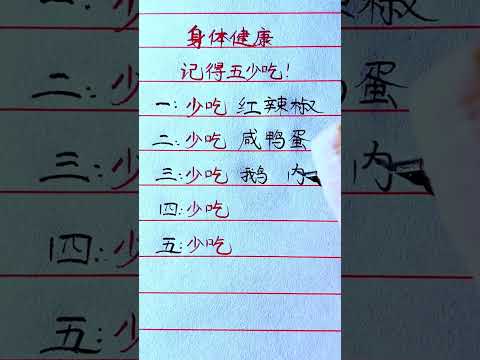 身体健康
记得五少吃!
一:少吃 红辣椒
二:少吃 咸鸭蛋
三:少吃 鹅 内
四:少吃
五:少吃